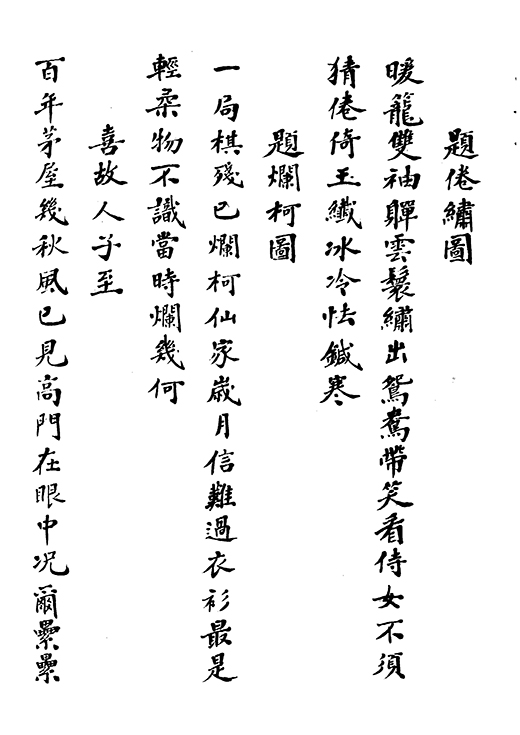 題倦繡圖
暖籠雙袖嚲雲鬟繡出鴛鴦帶笑看侍女不須
猜倦倚玉纖冰冷怯鍼寒
題爛柯圖
一局棋殘已爛柯仙家歲月信難過衣衫最是
輕柔物不識當時爛幾何
喜故人子至
百年茅屋幾秋風已見高門在眼中况爾纍纍